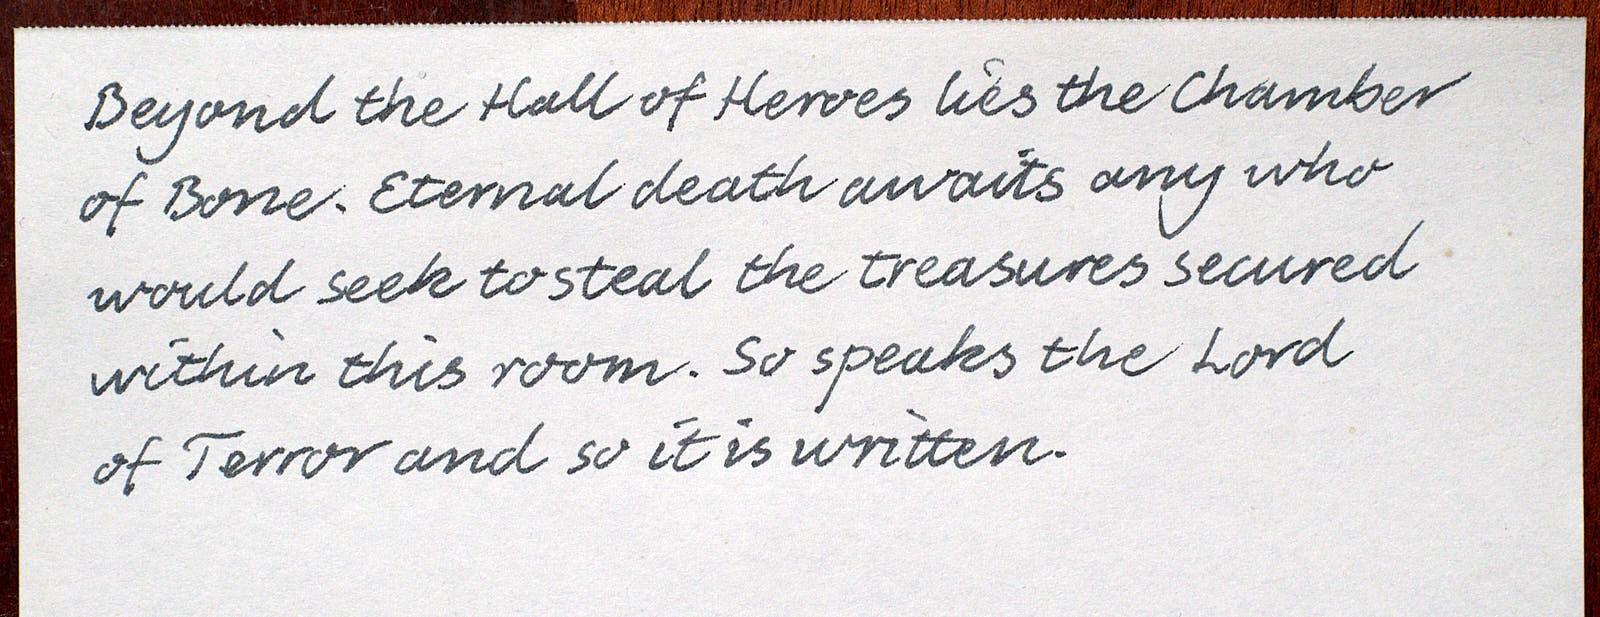 Beyond the Hall of Heroes lies the Chamber
of Bone. Eternal death awaits any who
would seek to steal the treasures secured
within this room. So speaks the Lord
of Terror and so it is written.